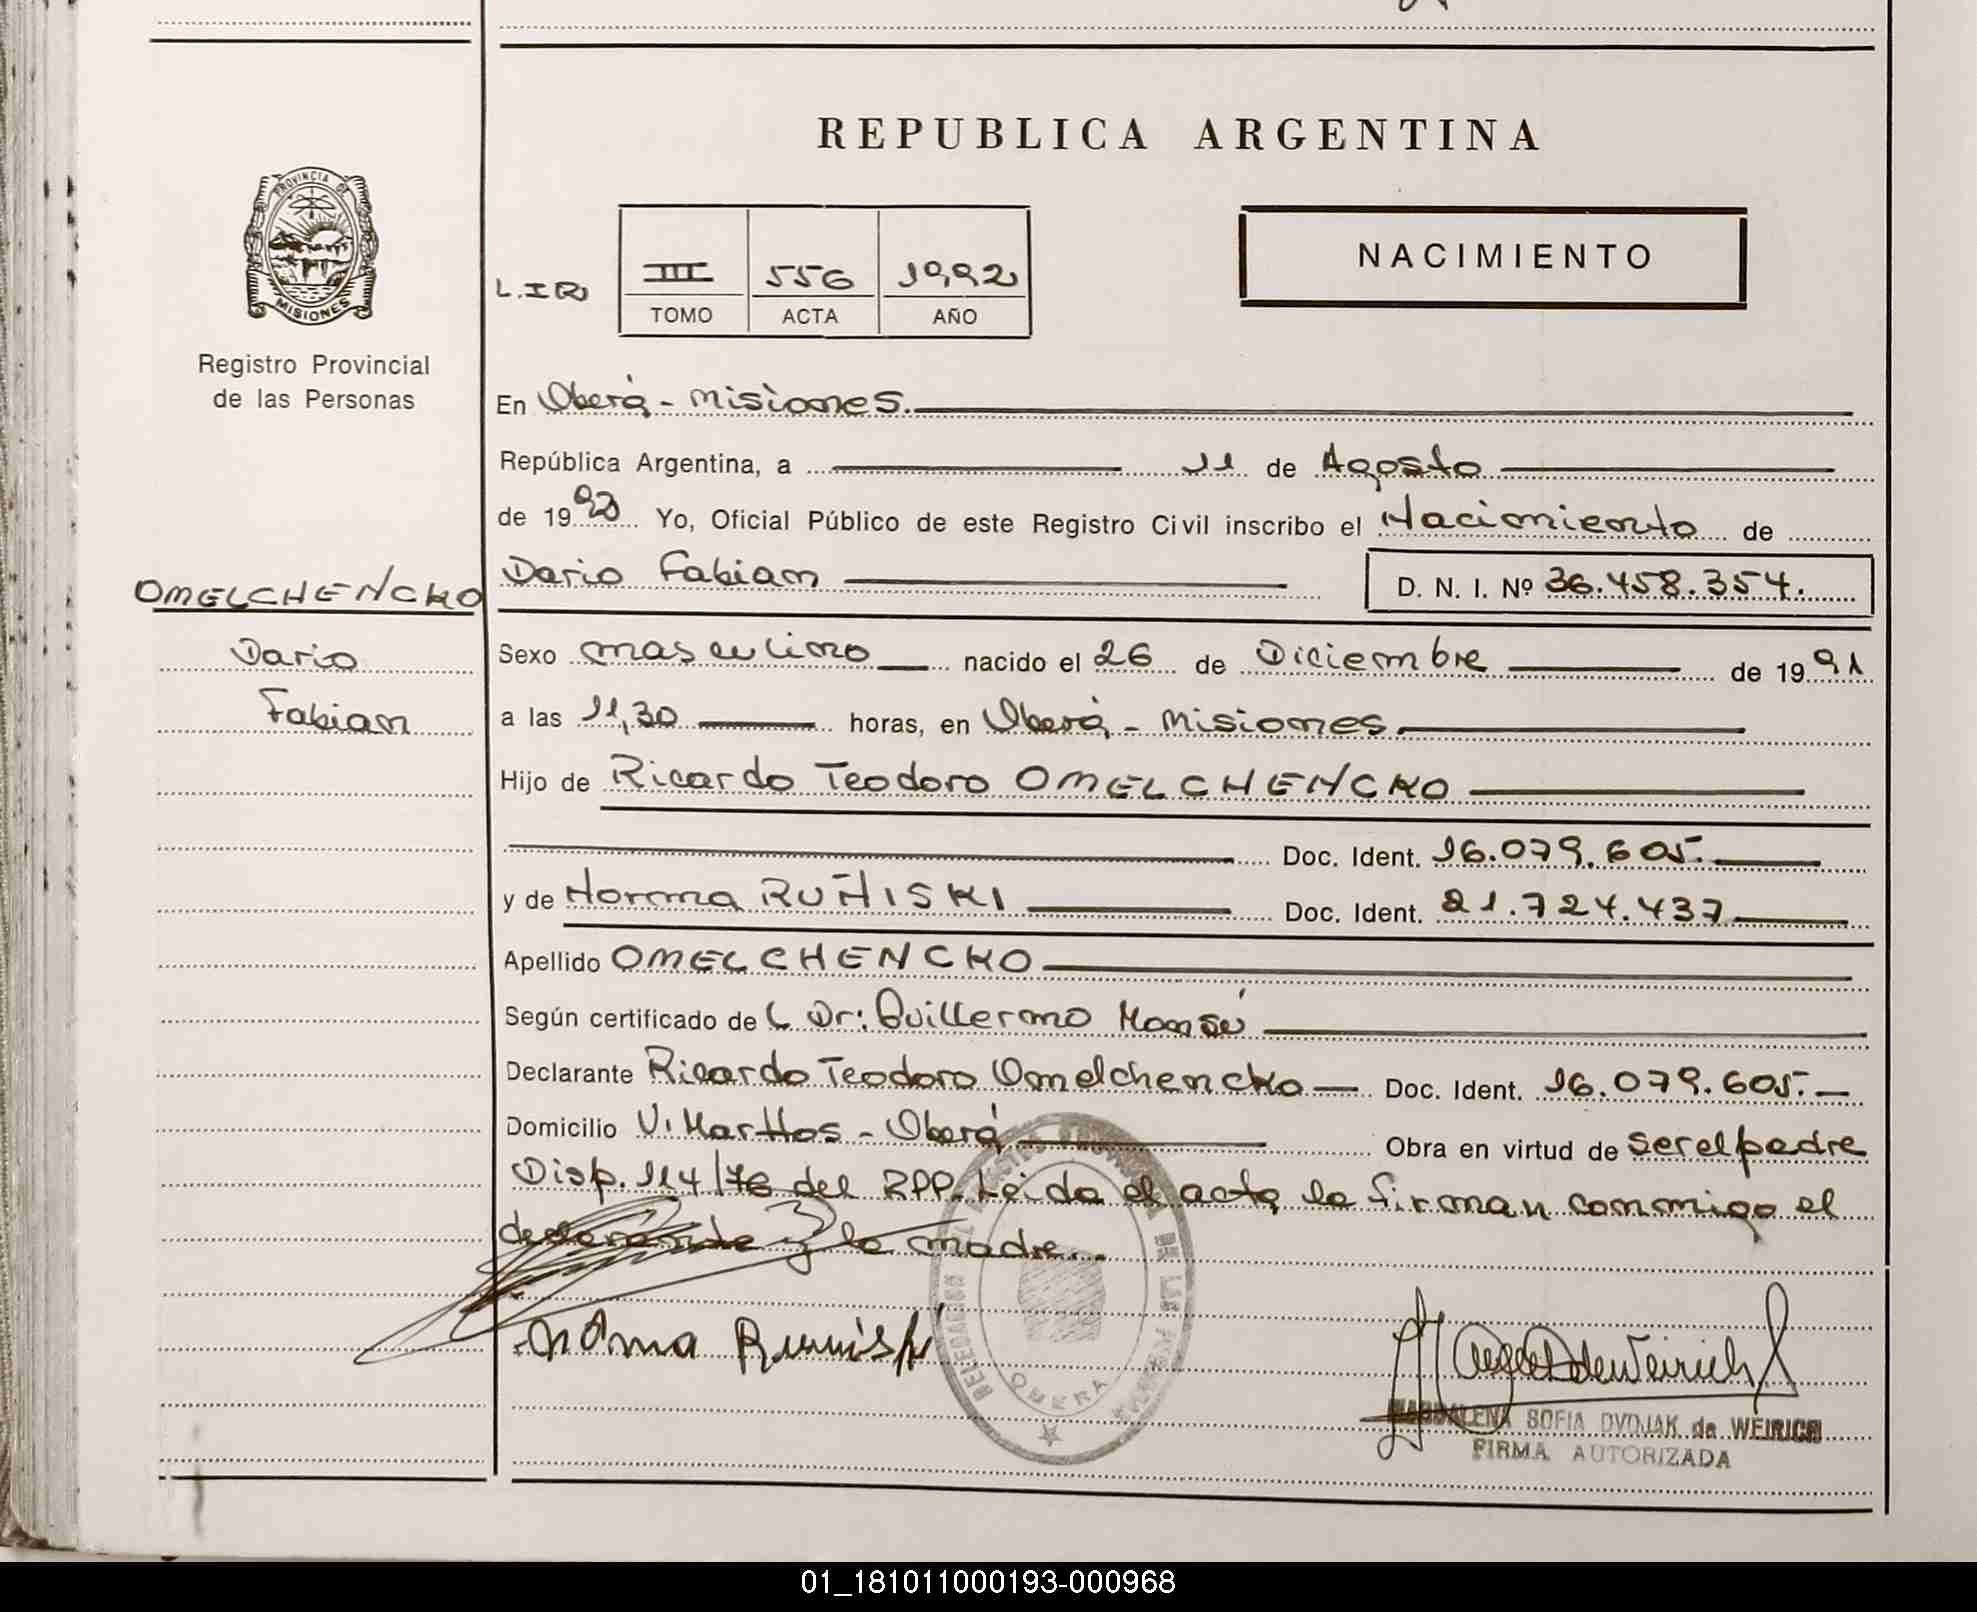 REPUBLICA ARGENTINA
PROVINCIA DE
MISIONES
Registro Provincial
de las Personas
NACIMIENTO
III 556 1992
TOMO ACTA AÑO
En Oberá - Misiones.
República Argentina, a 11 de Agosto
de 1992 Yo, Oficial Público de este Registro Civil inscribo el Nacimiento de
OMELCHENCKO
Dario
Fabian
Dario Fabian D. N. I. Nº 36.458.354.
Sexo masculino nacido el 26 de Diciembre de 1991
a las 11,30 horas, en Oberá - Misiones
Hijo de Ricardo Teodoro OMELCHENCKO
Doc. Ident. 16.079.605.
y de Norma RUÑISKI Doc. Ident. 21.724.437
Apellido OMELCHENCKO
Según certificado del Dr: Guillermo
Declarante Ricardo Teodoro Omelchencko Doc. Ident. 16.079.605.
Domicilio - Oberá Obra en virtud de ser el padre
Disp. 114/76 del RPP. Leida el acta, la firman conmigo el
declarante y la madre.
Norma
OBERA
MAGDALENA SOFIA DVOJAK de WEIRICH
FIRMA AUTORIZADA
01_181011000193-000968